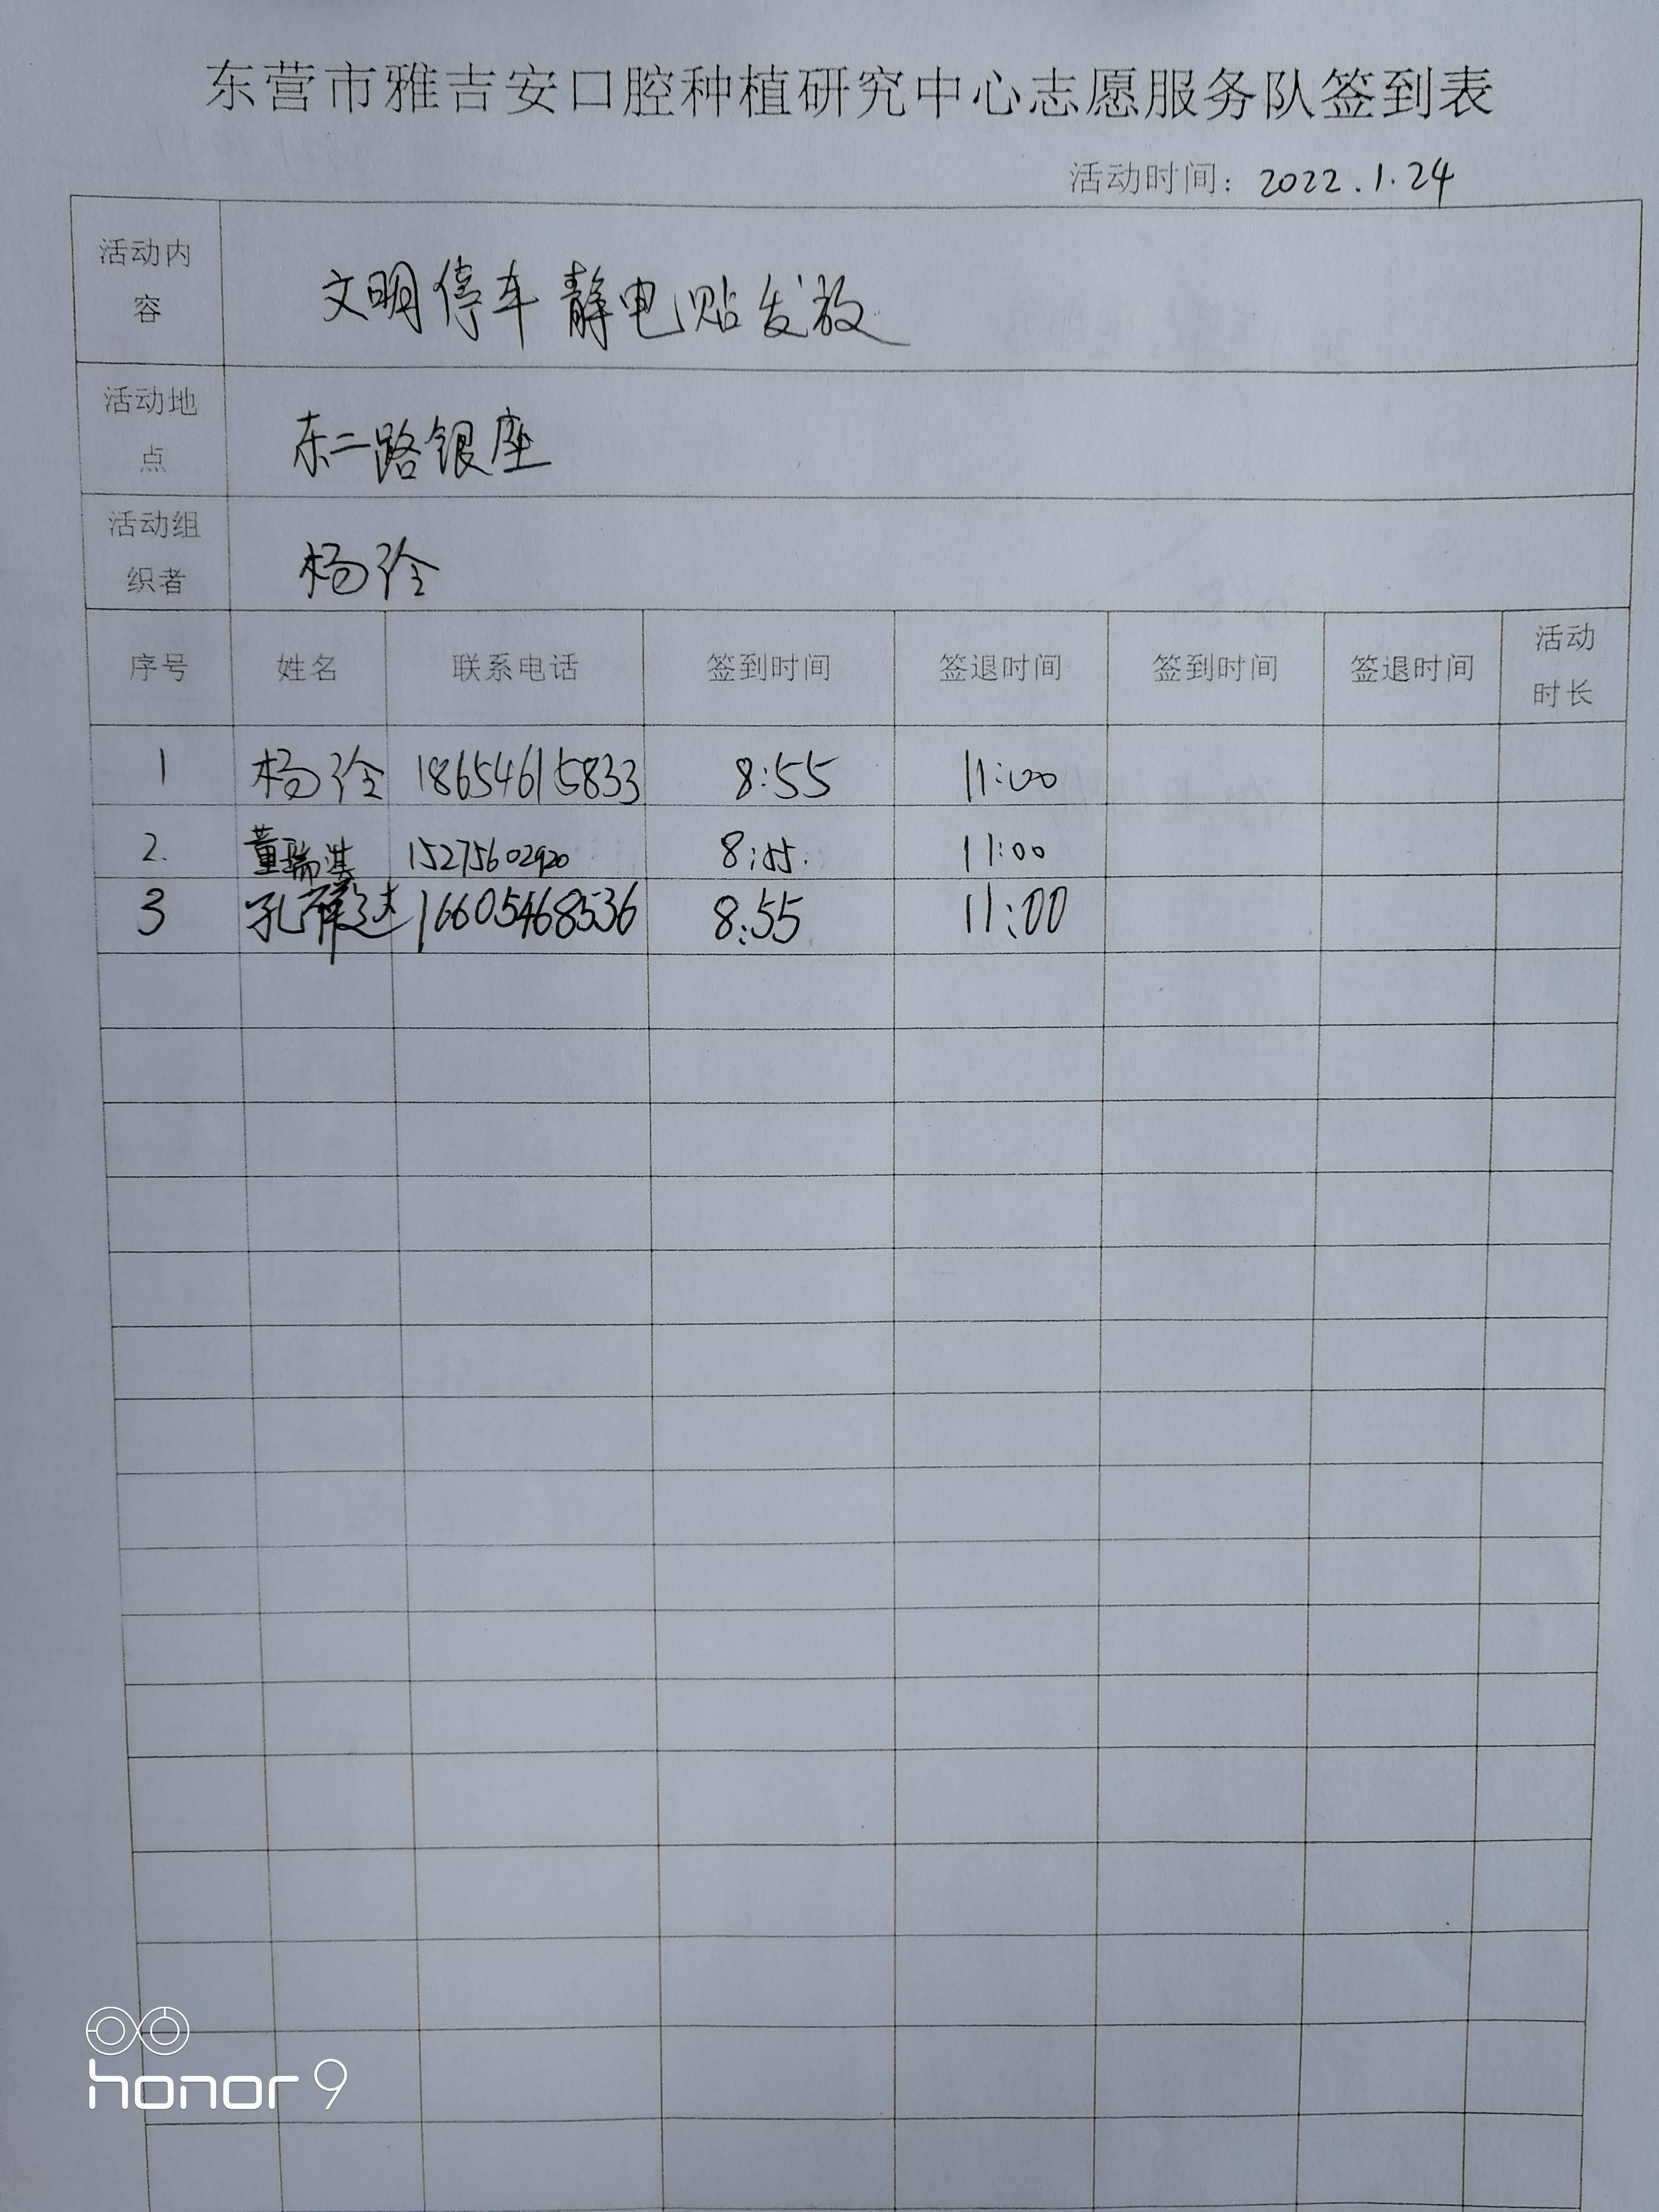 东营市雅吉安口腔种植研究中心志愿服务队签到表
活动时间：2022.1.24
活动内容 文明停车静电贴发放
活动地点 东二路银座
活动组织者 杨
序号 姓名 联系电话 签到时间 签退时间 签到时间 签退时间 活动时长
1 杨 18654615833 8:55 11:00
2. 董瑞淇 15275602920 8:55. 11:00
3 孔祥达 16605468536 8:55 11:00
honor 9